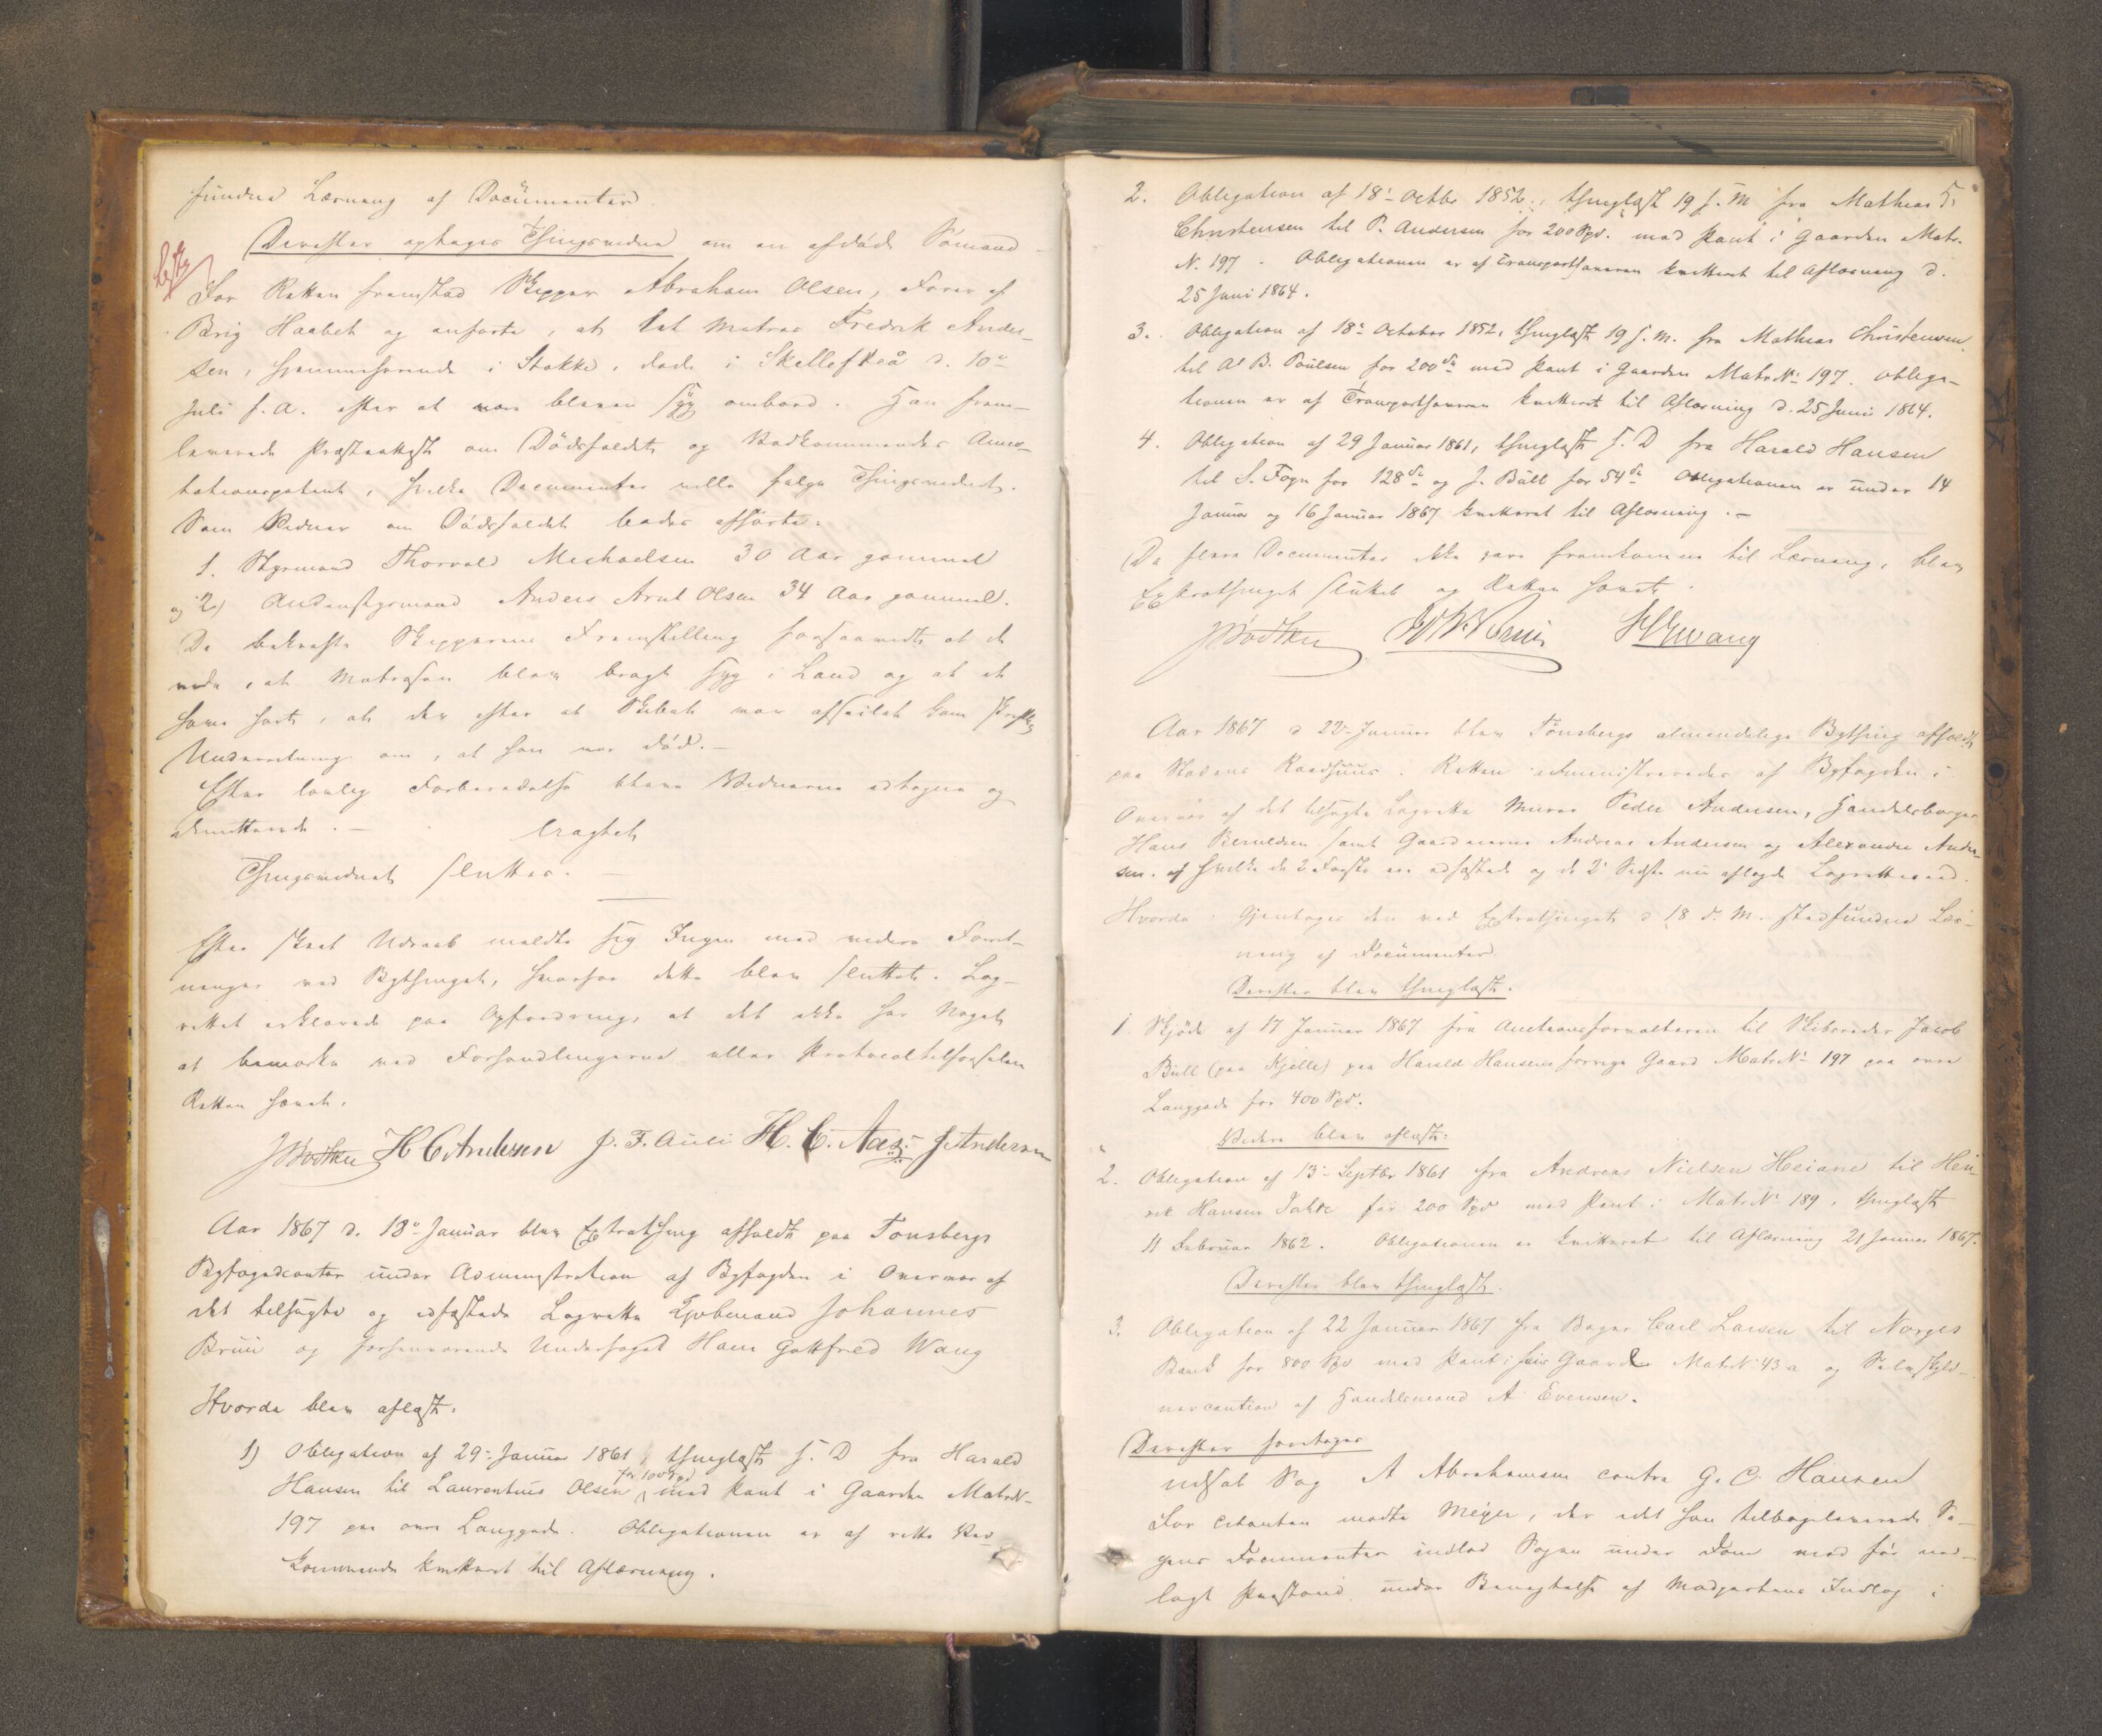 fundne Læsning af Documenter.
Derefter optages Thingsvidne om en afdød Sömand
For Retten fremstod Skipper Abraham Olsen, Förer af
Brig Haabet og anförte, at Matros Fredrik Ander-
sen, hjemmehörende i Stokke, döde i Skellefteå d. 10de
Juli f. A. efter at være bleven syg ombord. Han frem-
leverede Præsteattest om Dödsfaldet og Vedkommendes Anno-
tationspatent, hvilke Documenter ville fölge Thingsvidnet.
Som Vidner om Dödsfaldet bades afhörte:
1. Styrmand Thorvald Michaelsen 30 Aar gammel
og 2) Andenstyrmand Anders Arnt Olsen 34 Aar gammel.
De bekræfte Skipperens Fremstilling forsaavidt at de
vide, at Matrosen blev bragt syg i Land og at de
have hört, at der efter at Skibet var afseilet kom skriftlig
Underretning om, at han var död.-
Efter lovlig Forberedelse bleve Vidnerne edtagne og
demitterede.-
Thingsvidnet sluttes.-
Efter skeet Udraab meldte sig Ingen med videre Forret-
ninger ved Bythinget, hvorfor dette blev sluttet. Lag-
rettet erklærede paa Opfordring, at det ikke har Noget
at bemærke ved Forhandlingerne eller Protocoltilförselen
Retten hævet.
JBödtker HCAndersen J. F. Auli H. C. Aas JAndersen
Aar 1867 d. 18de Januar blev Extrathing afholdt paa Tonsbergs
Byfogedcontor under Administration af Byfogden i Overvær af
det tilsagte og edfæstede Lagrette Kjöbmand Johannes
Bruu og forhenværende Underfoged Hans Gottfred Wang
Hvorda blev aflæst:
1) Obligation af 29de Januar 1861, thinglæst s. D fra Harald
Hansen til Laurentius Olsen for 100 Spd med Pant i Gaarden MatrN-
197 paa övre Langgade. Obligationen er af rette Ved-
kommende kvitteret til Aflæsning.
2. Obligation af 18de Octbr 1852, thinglæst 19 s. M fra Mathias
Christensen til P. Andersen for 200 Spd. med Pant i Gaarden Matr.
N. 197. Obligationen er af Transporthaveren kvitteret til Aflæsning d.
25 Juni 1864.
3. Obligation af 18de October 1852, thinglæst 19 s. M. fra Mathias Christensen
til Al B. Poulsen for 200 Sp med Pant i Gaarden MatrN: 197. Obliga-
tionen er af Transporthaveren kvitteret til Aflæsning d. 25 Juni 1864.
4. Obligation af 29 Januar 1861, thinglæst s. D fra Harald Hansen
til S. Fogn for 128 Sp og J. Büll for 54 Sp Obligationen er under 14
Januar og 16 Januar 1867 kvitteret til Aflæsning.-
Da flere Documenter ikke vare fremkomne til Læsning, blev
Extrathinget sluttet og Retten hævet.
JBödtker HGWang
Aar 1867 d 22de Januar blev Tönsbergs almindelige Bything afholdt
paa Stadens Raadhuus. Retten administreredes af Byfogden i
Overvær af det tilsagte Lagrette Murer Peder Andersen, Handelsborger
Hans Berntsen samt Gaardeierne Andreas Andersen og Alexander Ander-
sen. af hvilke de 2 Förste ere edfæstede og de 2 Sidste nu aflagde Lagrettesed.
Hvorda: Gjentoges den ved Extrathinget d 18 d. M. stedfundne Læs-
ning af Documenter
Derefter blev thinglæst:
1. Skjöde af 17 Januar 1867 fra Auctionsforvalteren til Skibsreder Jacob
Büll (paa Kjelle) paa Harald Hansens forrige Gaard MatrN: 197 paa övre
Langgade for 400 Spd.
Videre blev aflæst:
2. Obligation af 13de Septbr 1861 fra Andreas Nielsen Heiane til Hen
rik Hansen for 200 Spd med Pant i MatrN: 189, thinglæst
11 Februar 1862. Obligationen er kvitteret til Aflæsning 21 Januar 1867.
Derefter blev thinglæst:
3. Obligation af 22 Januar 1867 fra Bager Carl Larsen til Norges
Bank for 800 Spd med Pant i hans Gaard MatrN: 43 a og Selvskyld-
nercaution af Handelsmand A Evensen.
Derefter foretages
udsat Sag A Abrahamsen contra G. C. Hansen
For Citanten mödte Meyer, der idet han tilbageleverede Sa-
gens Documenter indlod Sagen under Dom med för ned-
lagt Paastand under Benægtelse af Modpartens Indlæg i